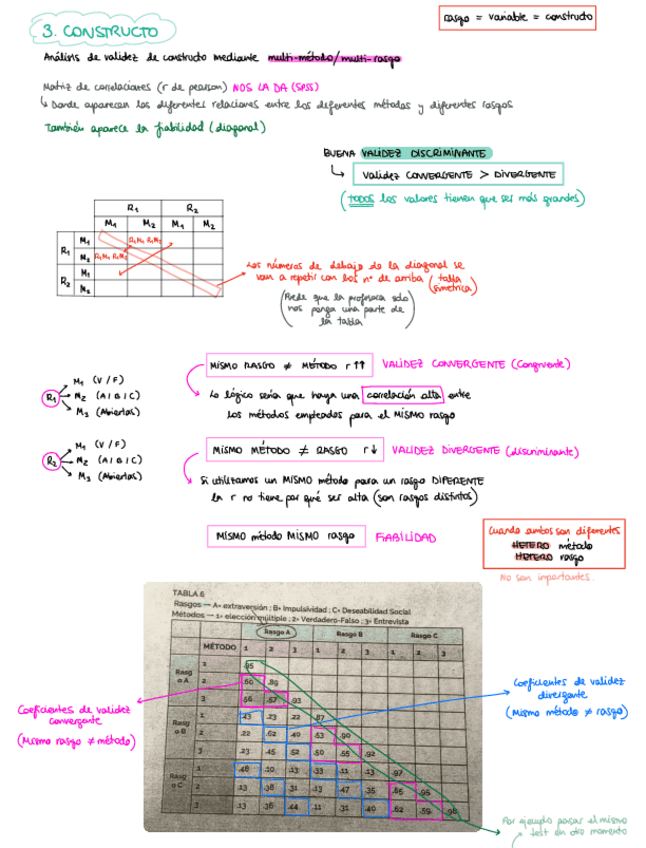 3. CONSTRUCTO
rasgo = variable = constructo
Análisis de validez de constructo mediante multi-método/multi-rasgo
Matriz de correlaciones (r de pearson) NOS LA DA (SPSS)
↳ Donde aparecen las diferentes relaciones entre los diferentes métodos y diferentes rasgos
También aparece la fiabilidad (diagonal)
BUENA VALIDEZ DISCRIMINANTE
↳ Validez CONVERGENTE > DIVERGENTE
(TODOS los valores tienen que ser más grandes)
R1 R2
M1 M2 M1 M2
R1 M1 R1M1 R1M2
M2 R1M1 R1M2
R2 M1
M2
Los números de debajo de la diagonal se
van a repetir con los nº de arriba (tabla simétrica)
(Puede que la profesora solo
nos ponga una parte de
la tabla)
MISMO RASGO ≠ MÉTODO r ↑↑ VALIDEZ CONVERGENTE (Congruente)
Lo lógico sería que haya una correlación alta entre
los métodos empleados para el MISMO rasgo
R1 M1 (V / F)
M2 (A / B / C)
M3 (Abiertas)
MISMO MÉTODO ≠ RASGO r↓ VALIDEZ DIVERGENTE (discriminante)
Si utilizamos un MISMO método para un rasgo DIFERENTE
la r no tiene por qué ser alta (son rasgos distintos)
R2 M1 (V / F)
M2 (A / B / C)
M3 (Abiertas)
MISMO método MISMO rasgo FIABILIDAD
Cuando ambos son diferentes
HETERO método
HETERO rasgo
No son importantes.
TABLA 6
Rasgos — A= extraversión ; B= Impulsividad ; C= Deseabilidad Social
Métodos — 1= elección múltiple ; 2= Verdadero-Falso ; 3= Entrevista
Rasgo A Rasgo B Rasgo C
MÉTODO 1 2 3 1 2 3 1 2 3
Rasgo A 1 .95
2 .60 .89
3 .56 .57 .93
Rasgo B 1 .43 .23 .22 .87
2 .22 .62 .40 .53 .90
3 .23 .45 .52 .50 .55 .92
Rasgo C 1 .48 .10 .13 .33 .11 .13 .97
2 .13 .38 .31 .13 .47 .35 .65 .95
3 .13 .36 .44 .11 .31 .40 .62 .59 .98
Coeficientes de validez
convergente
(Mismo rasgo ≠ método)
Coeficientes de validez
divergente
(Mismo método ≠ rasgo)
Por ejemplo pasar el mismo
test en otro momento